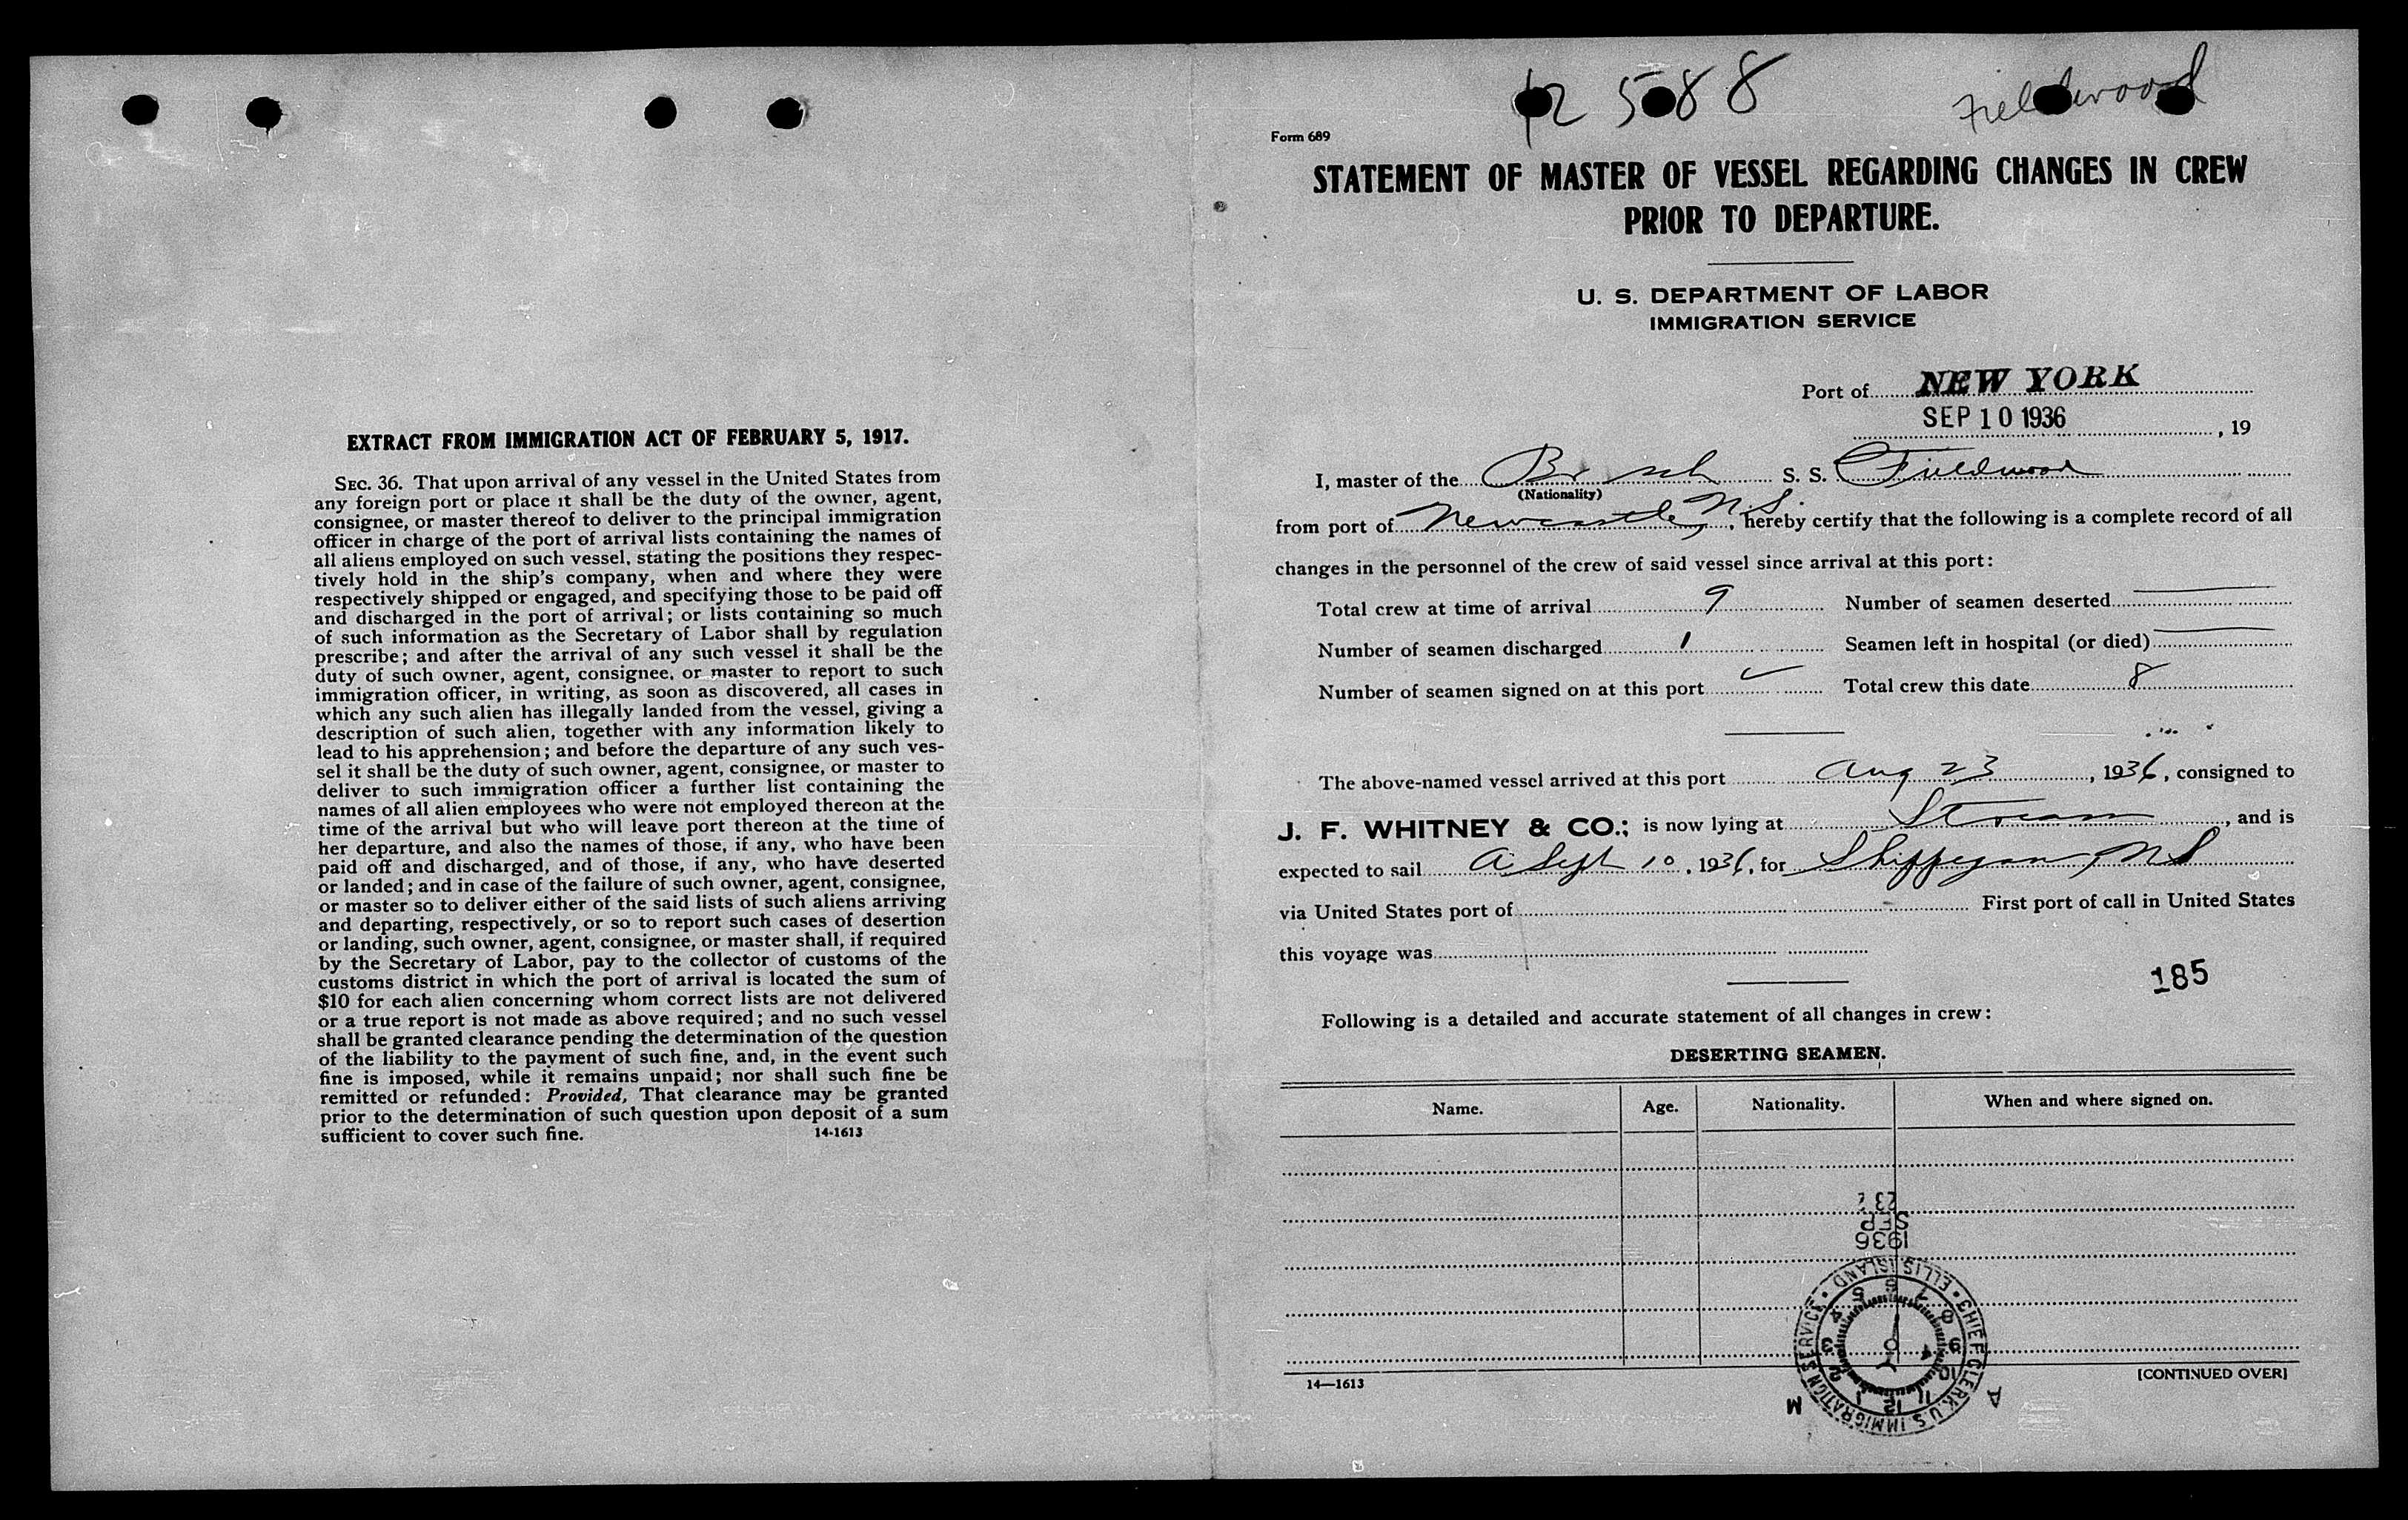 EXTRACT FROM IMMIGRATION ACT OF FEBRUARY 5, 1917.
SEC. 36. That upon arrival of any vessel in the United States from
any foreign port or place it shall be the duty of the owner, agent,
consignee, or master thereof to deliver to the principal immigration
officer in charge of the port of arrival lists containing the names of
all aliens employed on such vessel, stating the positions they respec-
tively hold in the ship's company, when and where they were
respectively shipped or engaged, and specifying those to be paid off
and discharged in the port of arrival; or lists containing so much
of such information as the Secretary of Labor shall by regulation
prescribe; and after the arrival of any such vessel it shall be the
duty of such owner, agent, consignee, or master to report to such
immigration officer, in writing, as soon as discovered, all cases in
which any such alien has illegally landed from the vessel, giving a
description of such alien, together with any information likely to
lead to his apprehension; and before the departure of any such ves-
sel it shall be the duty of such owner, agent, consignee, or master to
deliver to such immigration officer a further list containing the
names of all alien employees who were not employed thereon at the
time of the arrival but who will leave port thereon at the time of
her departure, and also the names of those, if any, who have been
paid off and discharged, and of those, if any, who have deserted
or landed; and in case of the failure of such owner, agent, consignee,
or master so to deliver either of the said lists of such aliens arriving
and departing, respectively, or so to report such cases of desertion
or landing, such owner, agent, consignee, or master shall, if required
by the Secretary of Labor, pay to the collector of customs of the
customs district in which the port of arrival is located the sum of
$10 for each alien concerning whom correct lists are not delivered
or a true report is not made as above required; and no such vessel
shall be granted clearance pending the determination of the question
of the liability to the payment of such fine, and, in the event such
fine is imposed, while it remains unpaid; nor shall such fine be
remitted or refunded: Provided, That clearance may be granted
prior to the determination of such question upon deposit of a sum
sufficient to cover such fine. 14-1613
Fieldwood
Form 689
STATEMENT OF MASTER OF VESSEL REGARDING CHANGES IN CREW
PRIOR TO DEPARTURE.
U. S. DEPARTMENT OF LABOR
IMMIGRATION SERVICE
Port of NEW YORK
SEP 10 1936 , 19
I, master of the S. S. Fieldwood
(Nationality)
from port of Newcastle, N.S. , hereby certify that the following is a complete record of all
changes in the personnel of the crew of said vessel since arrival at this port:
Total crew at time of arrival 9 Number of seamen deserted
Number of seamen discharged 1 Seamen left in hospital (or died)
Number of seamen signed on at this port Total crew this date 8
The above-named vessel arrived at this port Aug 23 , 1936, consigned to
J. F. WHITNEY & CO.; is now lying at Stream , and is
expected to sail Sept 10 , 1936, for Shippegan, N S
via United States port of First port of call in United States
this voyage was
185
Following is a detailed and accurate statement of all changes in crew:
DESERTING SEAMEN.
Name. Age. Nationality. When and where signed on.
1936
SEP
23
CHIEF CLERK U.S. IMMIGRATION SERVICE • ELLIS ISLAND •
12 1 2 3 4 5 6 7 8 9 10 11
M A
14—1613 [CONTINUED OVER]